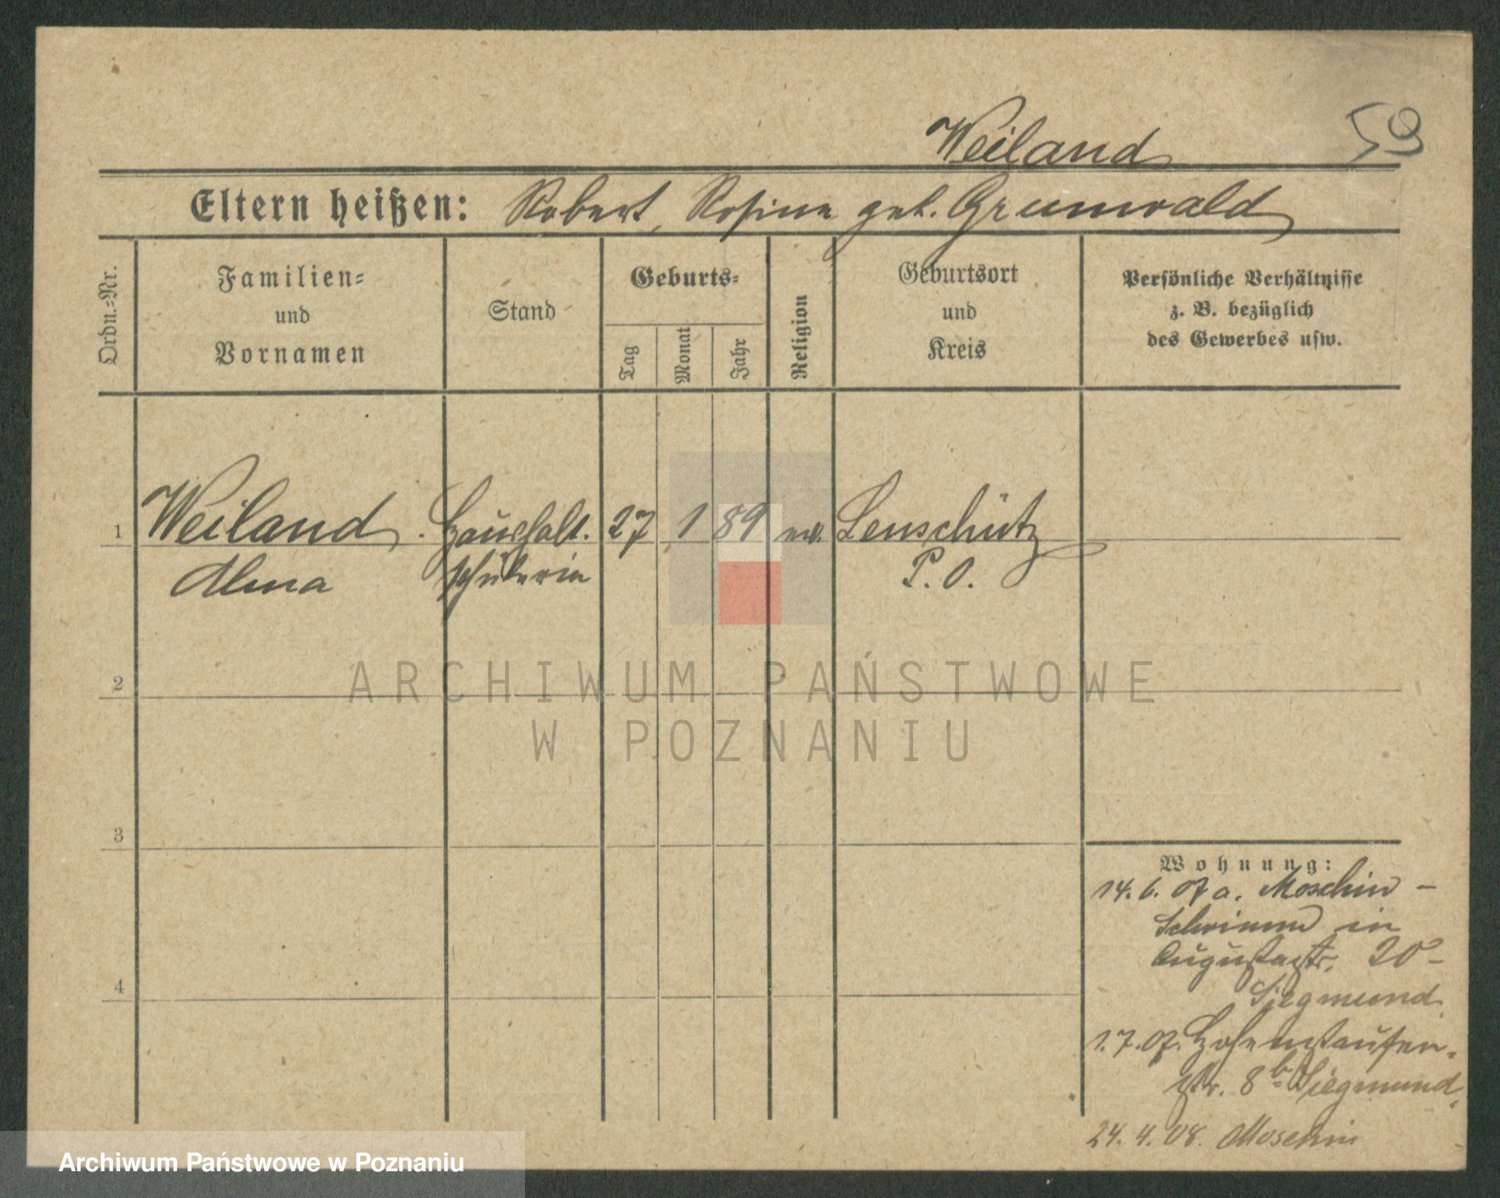 Weiland
59
Eltern heißen: Robert, Rosine geb. Grunwald
Ordn.=Nr.
Familien=
und
Vornamen
Stand
Geburts=
Tag
Monat
Jahr
Religion
Geburtsort
und
Kreis
Persönliche Verhältnisse
z. B. bezüglich
des Gewerbes usw.
1
Weiland
Alma
Haushalt.
schülerin
27
1
89
ev.
Lenschütz
P. O.
2
3
4
Wohnung:
14. 6. 07 a. Moschin –
in
Augustastr. 20
Siegmund
1. 7. 07. Hohenstaufen-
str. 8b Siegmund
24. 4. 08. Moschin
ARCHIWUM PAŃSTWOWE
W POZNANIU
Archiwum Państwowe w Poznaniu